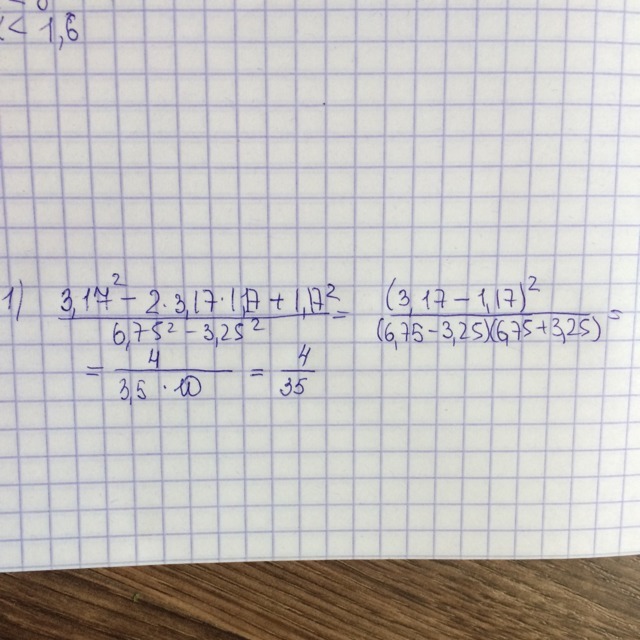 < 1,6
1) 3,17² - 2·3,17·1,17 + 1,17² / 6,75² - 3,25² = (3,17 - 1,17)² / (6,75 - 3,25)(6,75 + 3,25) =
= 4 / 3,5 · 10 = 4 / 35